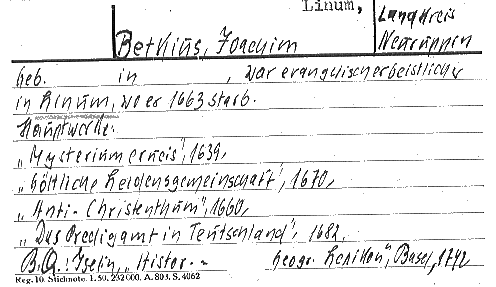 Linum,
Landkreis
Neuruppin
Betkius, Joachim
geb. in , war evangelischer Geistlicher
in Linum, wo er 1663 starb.
Hauptwerke:
„Mysterium crucis", 1639,
„Göttliche Leidensgemeinschaft", 1670,
„Anti-Christenthum", 1660,
„Das Predigamt in Teutschland", 1682.
B.Q.: Iselin, „Histor.- geogr. Lexikon", Basel, 1742
Reg. 10. Stichnote. 1. 50. 232000. A. 803. S. 4062